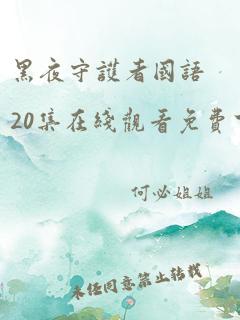 黑夜守護者國語
20集在綫觀看免費
何必姐姐
未經同意禁止轉載